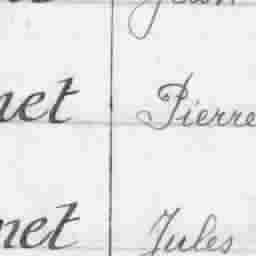 net Pierre
net Jules